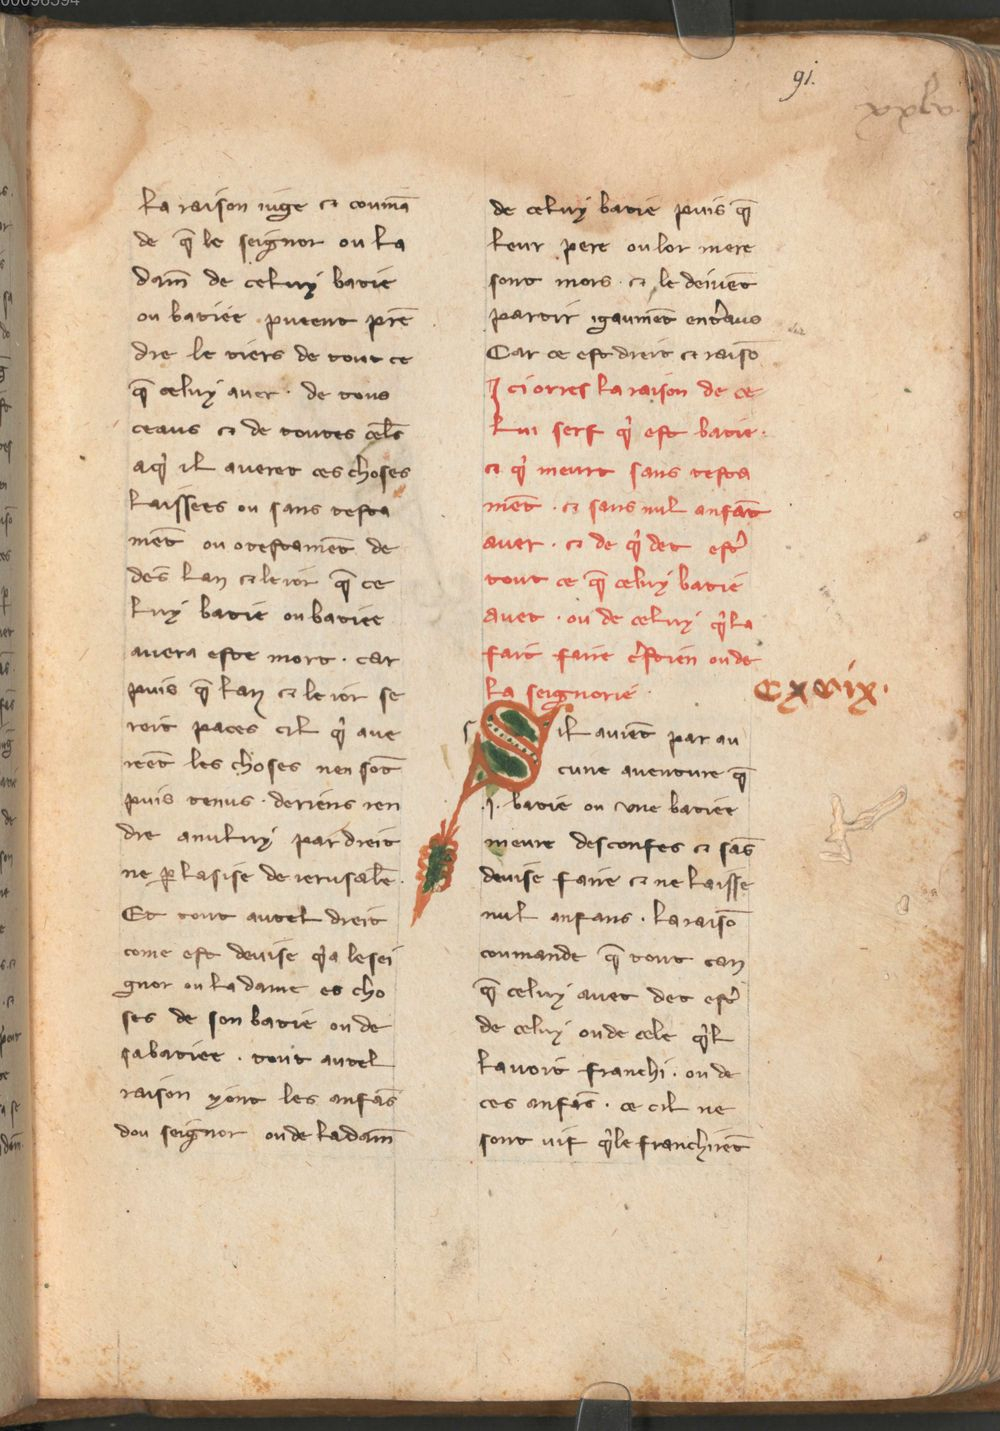 91.
xxlv.
la raison iuge et coum̄a
de q̄ le seignor ou la
dam̄ de celuy batie
ou batiee pueent prē
dre le tiers de tout ce
q̄ celuy auer · de tous
ceaus et de toutes cel̄s
aqͥ il aueret ces choses
laissees ou sans testa
mēt ou otestamēt de
dēs lan et le ior q̄ ce
luy batie ou batiee
auera este mort · car
puis q̄ lan et le ior se
roit paces cil qͥ aue
reēt les choses nen sōt
puis tenus · de riens ren
dre anuluy par dreit
ne ꝑ lasise de ierusalē ·
Et tout autel dreit
come est deuise qͥa le sei
gnor ou la dame es cho
ses de son batie ou de
sa batiee · tout autel
raison yont les anfās
dou seignor ou de la dam̄
de celuy batie puis q̄
leur pere ou lor mere
sont mors · et le deiuēt
partir igaumēt entr̄aus
Car ce est dreit et raisō
Ici orres la raison de ce
lui serf qͥ est batie ·
et qͥ meurt sans testa
mēt · et sans nul anfāt
auer · et de qͥ det estr̄
tout ce q̄ celuy batie
auet · ou de celuy qͥ la
fait faire cr̄stien ou de
la seignorie ·
cxcvix.
s
Sil auiēt par au
cune auenture q̄
.j. batie ou vne batiee
meure desconfes et sās
deuise faire et ne laisse
nul anfans · la raisō
coumande q̄ tout can
q̄ celuy auet det estr̄
de celuy ou de cele qͥl
lauoit franchi · ou de
ces anfās · ce cil ne
sont uif qͥ le franchirēt